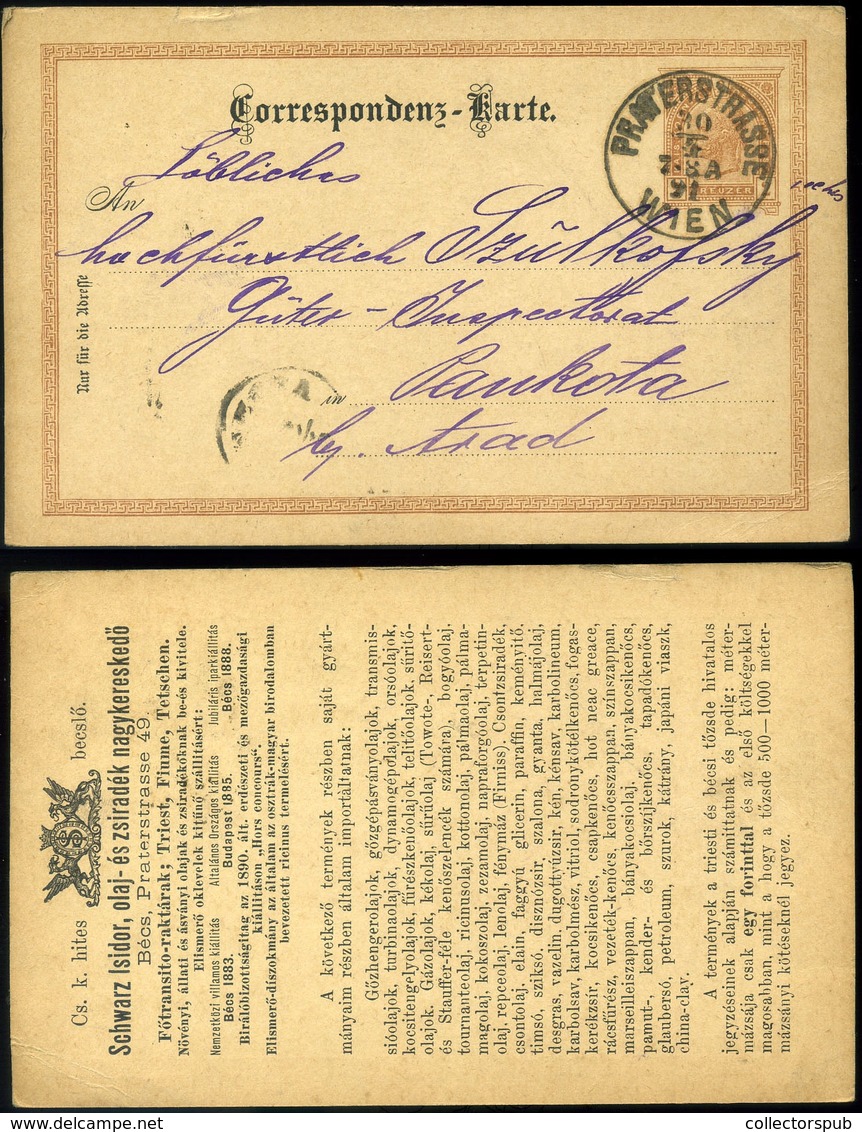 Correspondenz-Karte.
PRATERSTRASSE
20
4
7-8A
91
WIEN
KREUZER
Löbliches
An
hochfürstlich Szülkofsky
Güter-Inspectorat
in Pankota
by Arad
Nur für die Adresse
Cs. k. hites becslő.
Schwarz Isidor, olaj- és zsiradék nagykereskedő
Bécs, Praterstrasse 49.
Főtransito-raktárak; Triest, Fiume, Tetschen.
Növényi, állati és ásványi olajak és zsiradékoknak be-és kivitele.
Elismerő oklevelek kitünő szállitásért:
Nemzetközi villamos kiállítás Általános Országos kiállítás Jubiláris iparkiállítás
Bécs 1883. Budapest 1885. Bécs 1888.
Birálóbizottságitag az 1890. ált. erdészeti és mezőgazdasági
kiállitáson „Hors concours“.
Elismerő-diszokmány az általam az osztrák-magyar birodalomban
bevezetett ricinus termelésért.
A következő termények részben saját gyárt-
mányaim részben általam importáltatnak:
Gőzhengerolajok, gőzgépásványolajok, transmis-
sióolajok, turbinaolajok, dynamogépőlajok, orsóolajok,
kocsitengelyolajok, fűrészkenőolajok, telítőolajok, sűritő-
olajok. Gázolajok, kékolaj, sűrűolaj (Towote-, Reisert-
és Stauffer-féle kenőszelenczék számára), bogyóolaj,
tournanteolaj, ricinusolaj, kottonolaj, pálmaolaj, pálma-
magolaj, kokoszolaj, zezamolaj, napraforgóolaj, terpetin-
olaj, repceolaj, lenolaj, fénymáz (Firniss). Csontzsiradék,
csontolaj, elain, faggyú glicerin, paraffin, keményitő,
timsó, sziksó, disznózsir, szalona, gyanta, halmájolaj,
desgras, vazelin, dugottyúzsir, kén, kénsav, karbolineum,
karbolsav, karbolmész, vitriol, sodronykötélkenőcs, fogas-
kerékzsir, kocsikenőcs, csapkenőcs, hot neac greace,
rácsfűrész, vezeték-kenőcs, kenőcsszappan, szinszappan,
marseilleiszappan, bányakocsiolaj, bányakocsikenőcs,
pamut-, kender- és bőrszijkenőcs, tapadókenőcs,
glaubersó, petroleum, szurok, kátrány, japáni viaszk,
china-clay.
A termények a triesti és bécsi tőzsde hivatalos
jegyzéseinek alapján számittatnak és pedig: méter-
mázsája csak egy forinttal és az első költségekkel
magosabban, mint a hogy a tőzsde 500—1000 méter-
mázsányi kötéseknél jegyez.
collectorspub